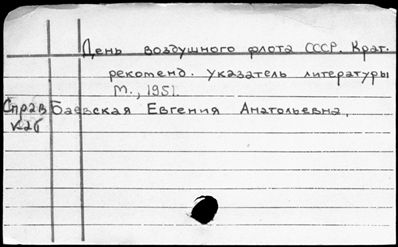 День воздушного флота СССР. Крат.
рекоменд. указатель литературы
М., 1951.
Справ Баевская Евгения Анатольевна.
каб